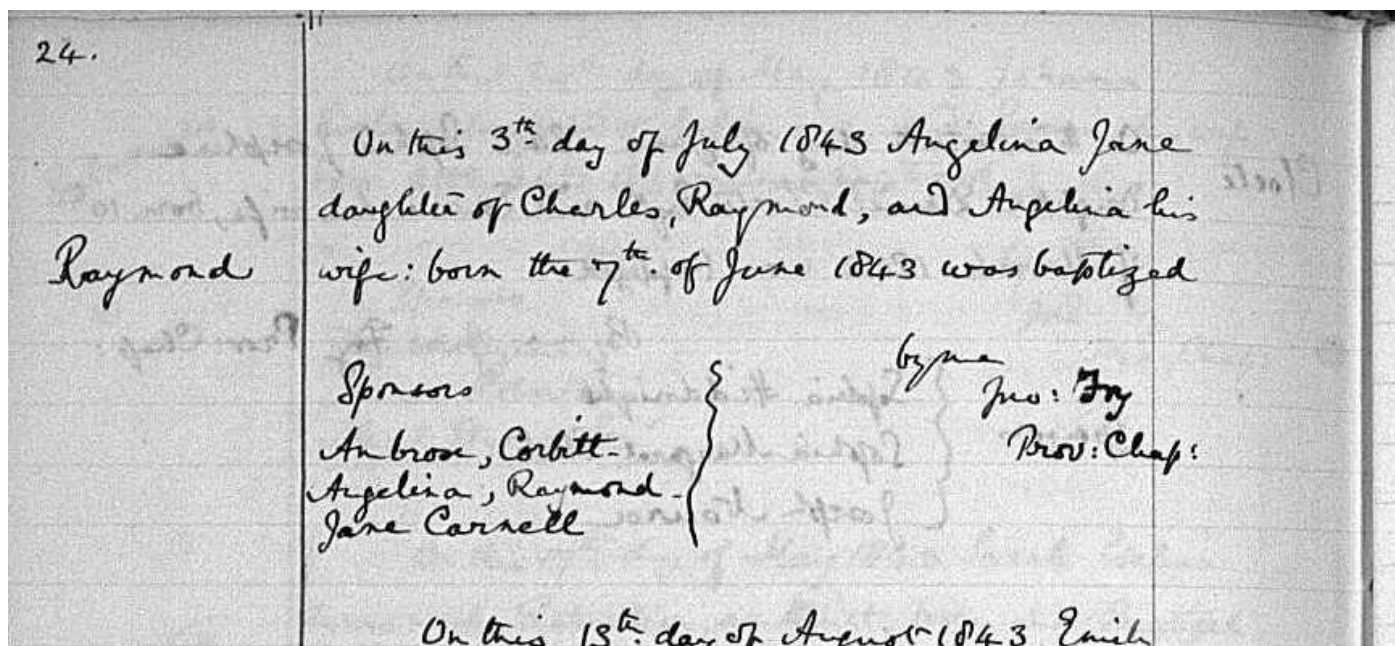 24.
On this 3th day of July 1843 Angelina Jane
daughter of Charles, Raymond, and Angelina his
Raymond
wife: born the 7th. of June 1843 was baptized
by me
Sponsors
Jno: Fry
Ambrose, Corbitt-
Prov: Chap:
Angelina, Raymond-
Jane Carnell
On this 13th day of August 1843 Emily